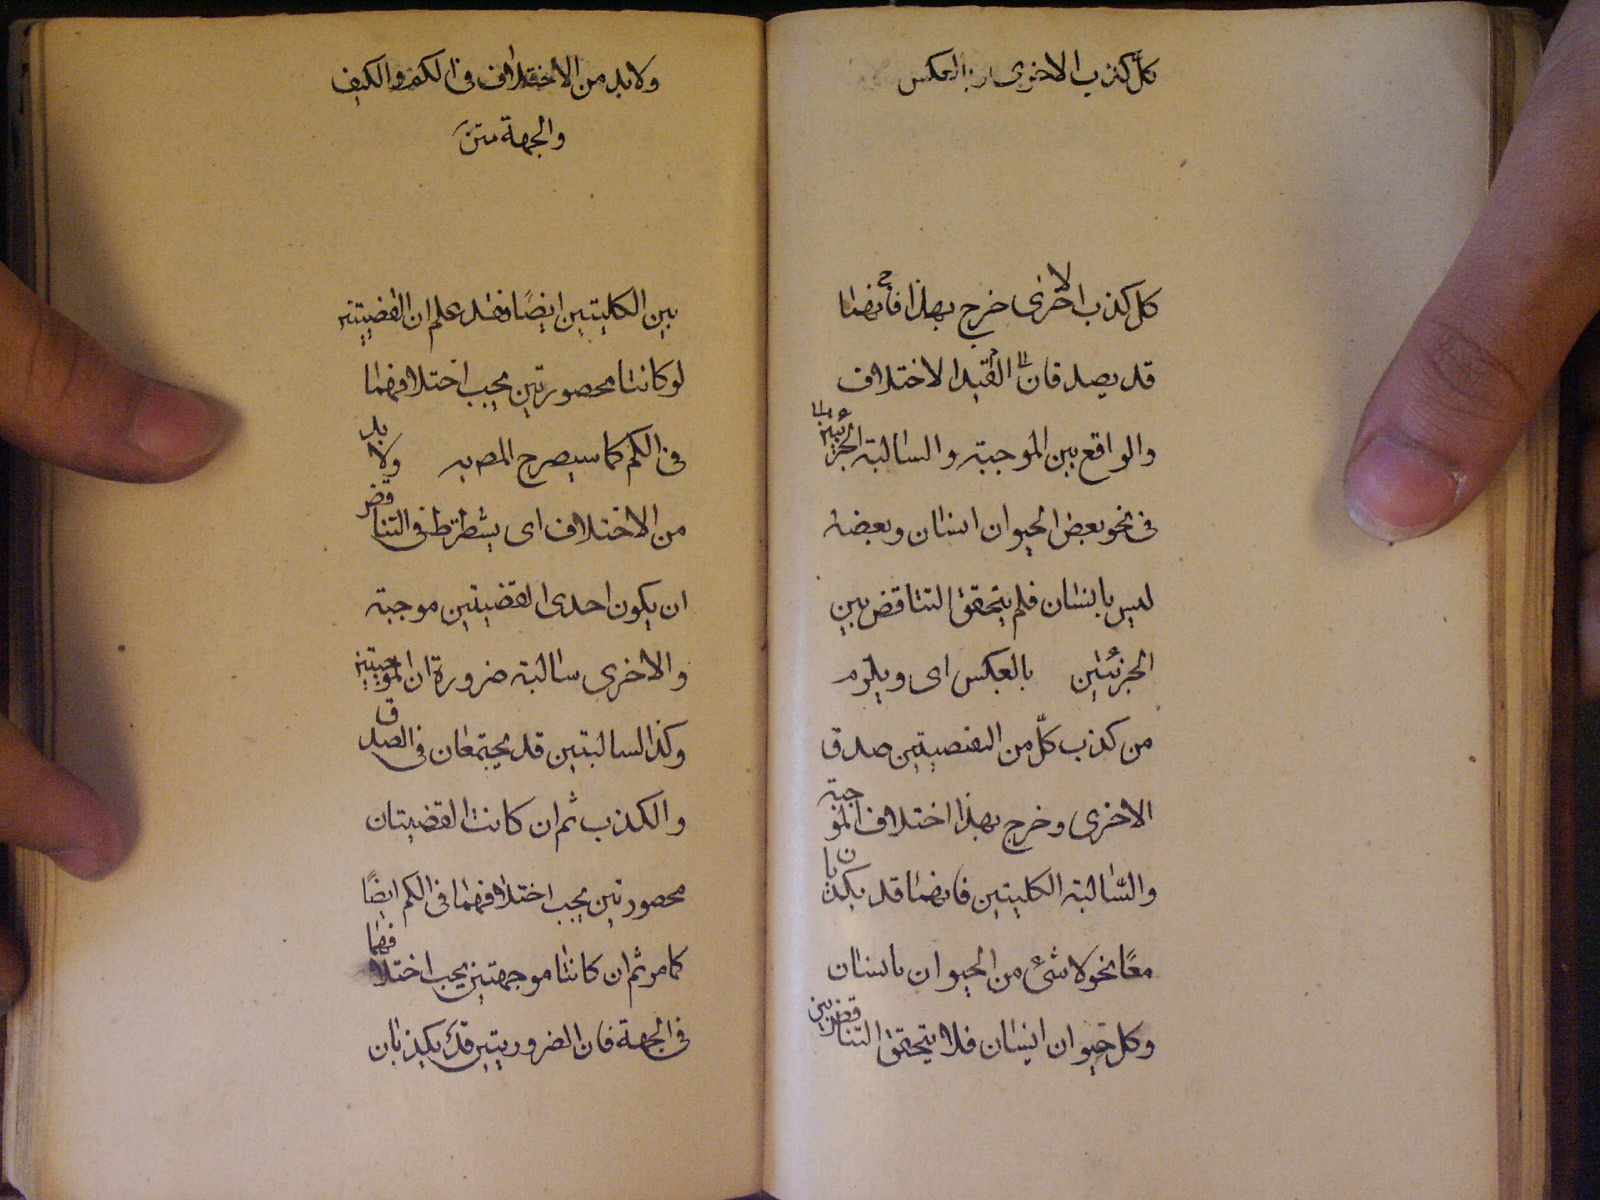 كل كذب الاخرى و بالعكس
كل كذب الاخرى خرج بهذا فانهما
قد يصدقان القيد الاختلاف
والواقع بين الموجبة والسالبة الجزئيتين
فى نحو بعض الحيوان انسان وبعضه
ليس بانسان فلم يتحقق التناقض بين
الجزئيتين بالعكس اى ويلزم
من كذب كلّ من القضيتين صدق
الاخرى وخرج بهذا اختلاف الموجبة
والسّالبة الكليتين فانهما قد يكذبان
معًا نحو لا شئ من الحيوان بانسان
وكل حيوان انسان فلا يتحقق التناقض بين
ولا بد من الاختلاف فى الكم والكيف
والجهة متن
بين الكليتين ايضًا وقد علم ان القضيتين
لو كانتا محصورتين يجب اختلافهما
فى الكم كما سيصرح المص به ولا بد
من الاختلاف اى يشترط فى التناقض
ان يكون احدى القضيتين موجبة
والاخرى سالبة ضرورة ان الموجبتين
وكذا السالبتين قد يجتمعان فى الصدق
والكذب ثم ان كانت القضيتان
محصورتين يجب اختلافهما فى الكم ايضًا
كما مر ثم ان كانتا موجهتين يجب اختلافهما
فى الجهة فان الضروريتين قد يكذبان